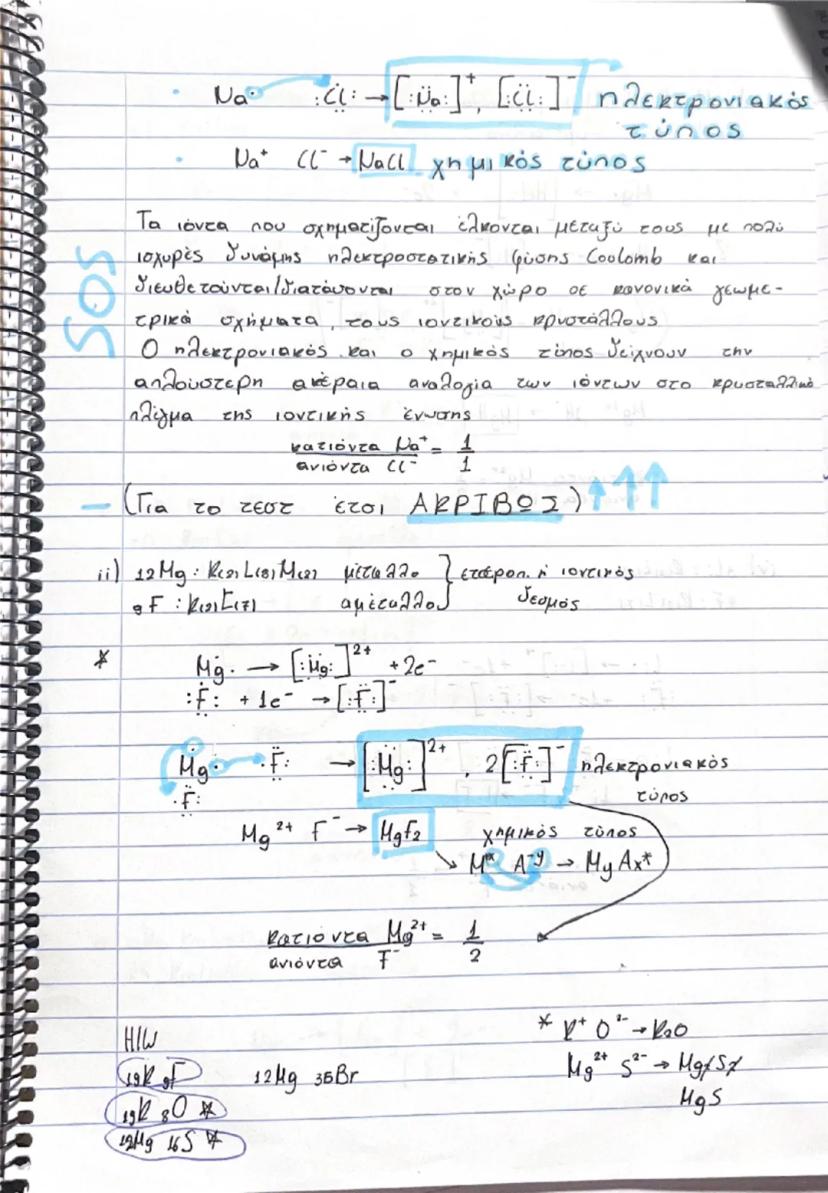 Na· :Cl: → [:Na:]⁺, [:Cl:]⁻ ηλεκτρονιακός
τύπος
Na⁺ Cl⁻ → NaCl χημικός τύπος
Τα ιόντα που σχηματίζονται έλκονται μεταξύ τους με πολύ
ισχυρές δυνάμης ηλεκτροστατικής φύσης Coolomb και
SOS
διευθετούνται/διατάσονται στον χώρο σε κανονικά γεωμε-
τρικά σχήματα, τους ιοντικούς κρυστάλλους
Ο ηλεκτρονιακός και ο χημικός τύπος δείχνουν την
απλούστερη ακέραια αναλογία των ιόντων στο κρυσταλλικό
πλέγμα της ιοντικής ένωσης
κατιόντα Na⁺ = 1
ανιόντα Cl⁻ 1
— (Για το τεστ έτσι ΑΚΡΙΒΩΣ) ↑↑↑
ii) 12Mg: K(2) L(8) M(2) μέταλλο } ετεροπ. ή ιοντικός
9F: K(2) L(7) αμέταλλο δεσμός
* Mg· → [:Mg:]²⁺ +2e⁻
:F: + 1e⁻ → [:F:]⁻
Mg· ·F: → [:Mg:]²⁺, 2[:F:]⁻ ηλεκτρονιακός
·F: τύπος
Mg²⁺ F⁻ → MgF2 χημικός τύπος
↘ Mˣ A⁻ʸ → MyAx*
κατιόντα Mg²⁺ = 1
ανιόντα F⁻ 2
H/W
19K 9F 12Mg 35Br
19K 8O *
12Mg 16S *
* K⁺ O²⁻ → K2O
Mg²⁺ S²⁻ → Mg2S2
MgS